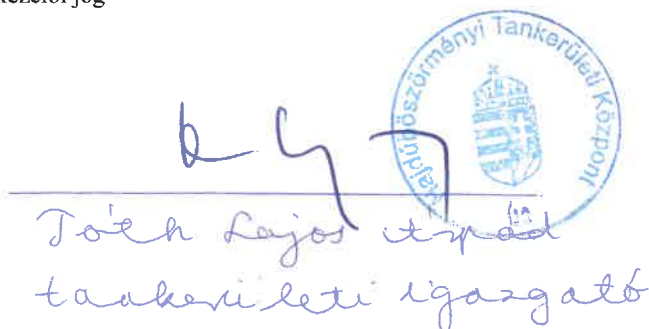 kezelői jog
Hajdúböszörményi Tankerületi Központ
Tóth Lajos Árpád
tankerületi igazgató